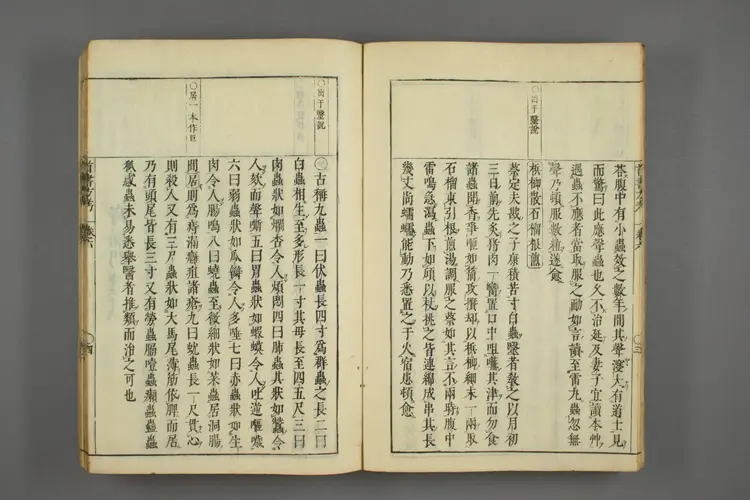 荅腹中有小蟲效之數年間其聲浸大有道士見
而驚曰此應聲蟲也久不治延及妻子宜讀本艸
遇蟲不應者當取服之勔如言讀至雷丸蟲忽無
聲乃頓服數粒遂愈
檳榔散石榴根煎
蔡定夫戩之子康積苦寸白蟲醫者敎之以月初
三日前先炙猪肉一臠置口中咀嚼其津而勿食
諸蟲聞香爭㗖如箭攻攢却以檳榔細末一兩取
石榴東引根煎湯調服之蔡如其言不兩時腹中
雷鳴急瀉蟲下如傾以杖挑之皆連緜成串其長
幾丈尚蠕蠕能動乃悉置之于火宿患頓愈
○出于醫說
○出于醫說
○居一本作巨
古稱九蟲一曰伏蟲長四寸爲群蟲之長二曰
白蟲相生至多形長一寸其母長至四五尺三曰
肉蟲狀如爛杏令人煩悶四曰肺蟲其狀如蠶令
人欬而聲嘶五曰胃蟲狀如蝦蟆令人吐逆嘔噦
六曰弱蟲狀如瓜瓣令人多唾七曰赤蟲狀如生
肉令人腸鳴八曰蟯蟲至後細狀如菜蟲居洞腸
間居則爲痔漏癰疽諸瘡九曰蚘蟲長一尺貫心
則殺人又有三尸蟲狀如大馬尾薄筋依脾而居
乃有頭尾皆長三寸又有勞蟲膈噎蟲癩蟲蠱蟲
狐惑蟲未易悉舉醫者推類而治之可也
卷六
四